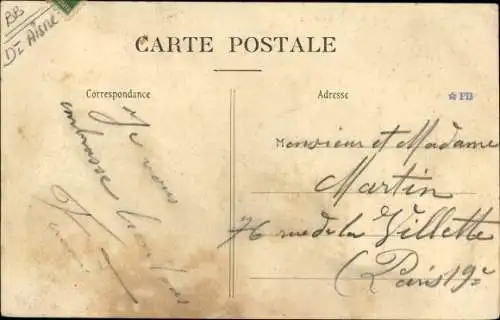 BB
Dt Aisne
CARTE POSTALE
Correspondance
Adresse
PD
Je vous
embrasse bien tous
Monsieur et Madame
Martin
76 rue de la Villette
(Paris 19e